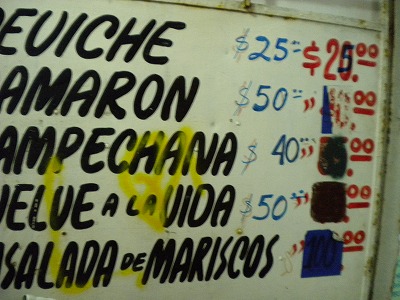 EVICHE $25.00 $25.00
AMARON $50.00 .00
AMPECHANA $40.00 .00
UELVE A LA VIDA $50.00 .00
SALADA DE MARISCOS 100 .00